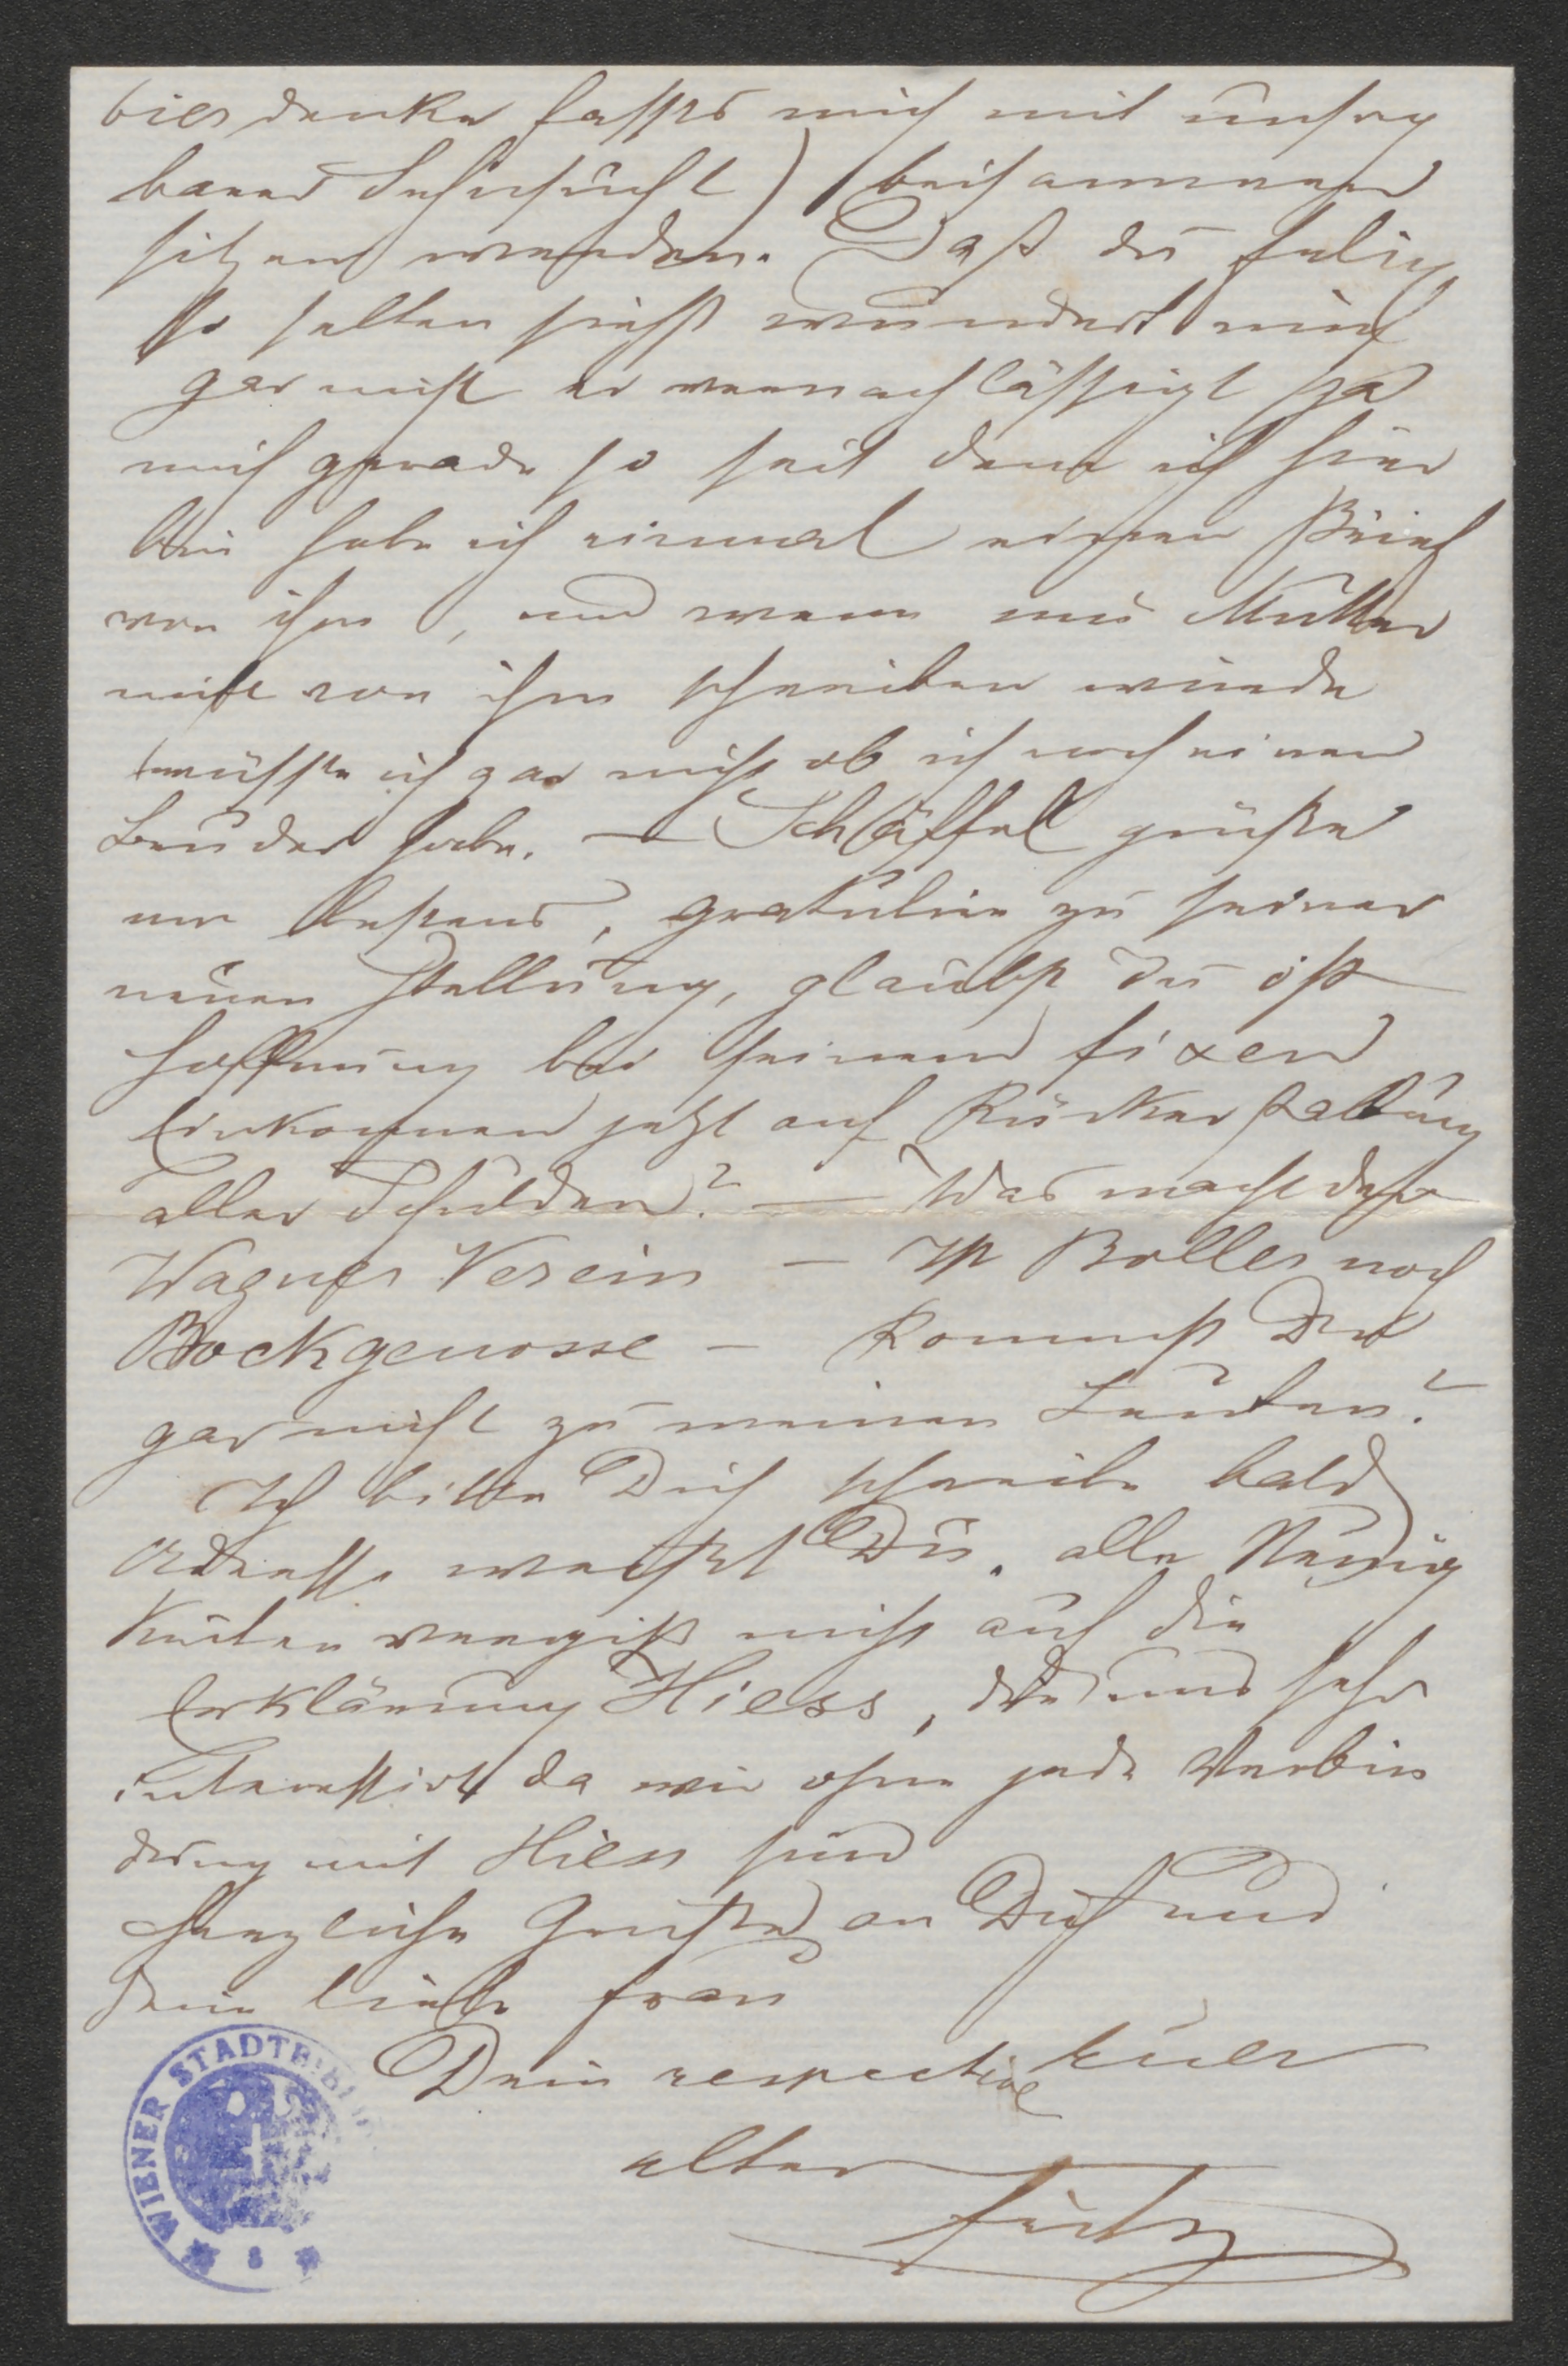 bier denke fasst's mich mit unsag
barer Sehnsucht) beisammen
sitzen werden. Daß du Felix
so selten siehst wundert mich
gar nicht er vernachlässigt ja
mich gerade so seit dem ich hier
bin habe ich einmal einen Brief
von ihm, und wenn mir Mutter
nicht von ihm schreiben würde
wüsste ich gar nicht ob ich noch einen
Bruder habe. — Schläffel grüße
mir bestens, gratulire zu seiner
neuen Stellung, glaubst Du ist
Hoffnung bei seinem fixen
Einkommen jetzt auf Rückerstattung
aller Schulden? — Was macht der
Wagner Verein — Ist Boller noch
Bockgenosse — Kommst Du
gar nicht zu meinen Leuten?
Ich bitte Dich schreibe bald
Adresse weißt Du. alle Neuig
keiten vergiß nicht auf die
Erklärung Hiess, die uns sehr
interessirt da wir ohne jede Verbin
dung mit Hiess sind
Herzliche Grüße an Dich und
Deine liebe Frau
Dein respective Euer
alter
Fritz
WIENER STADTBIBL
8